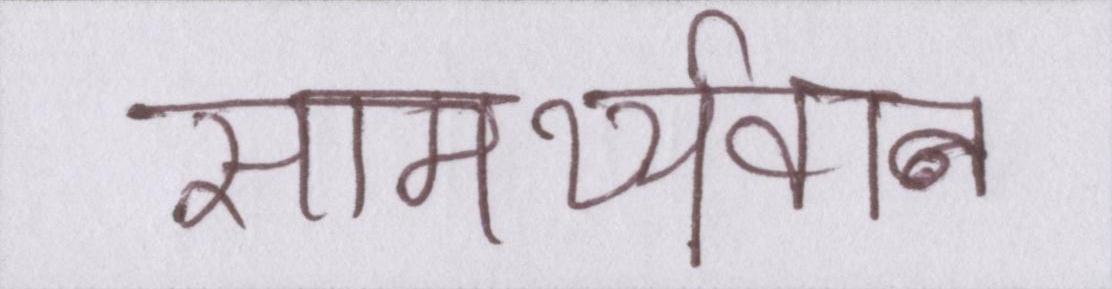 सामर्थ्यवान